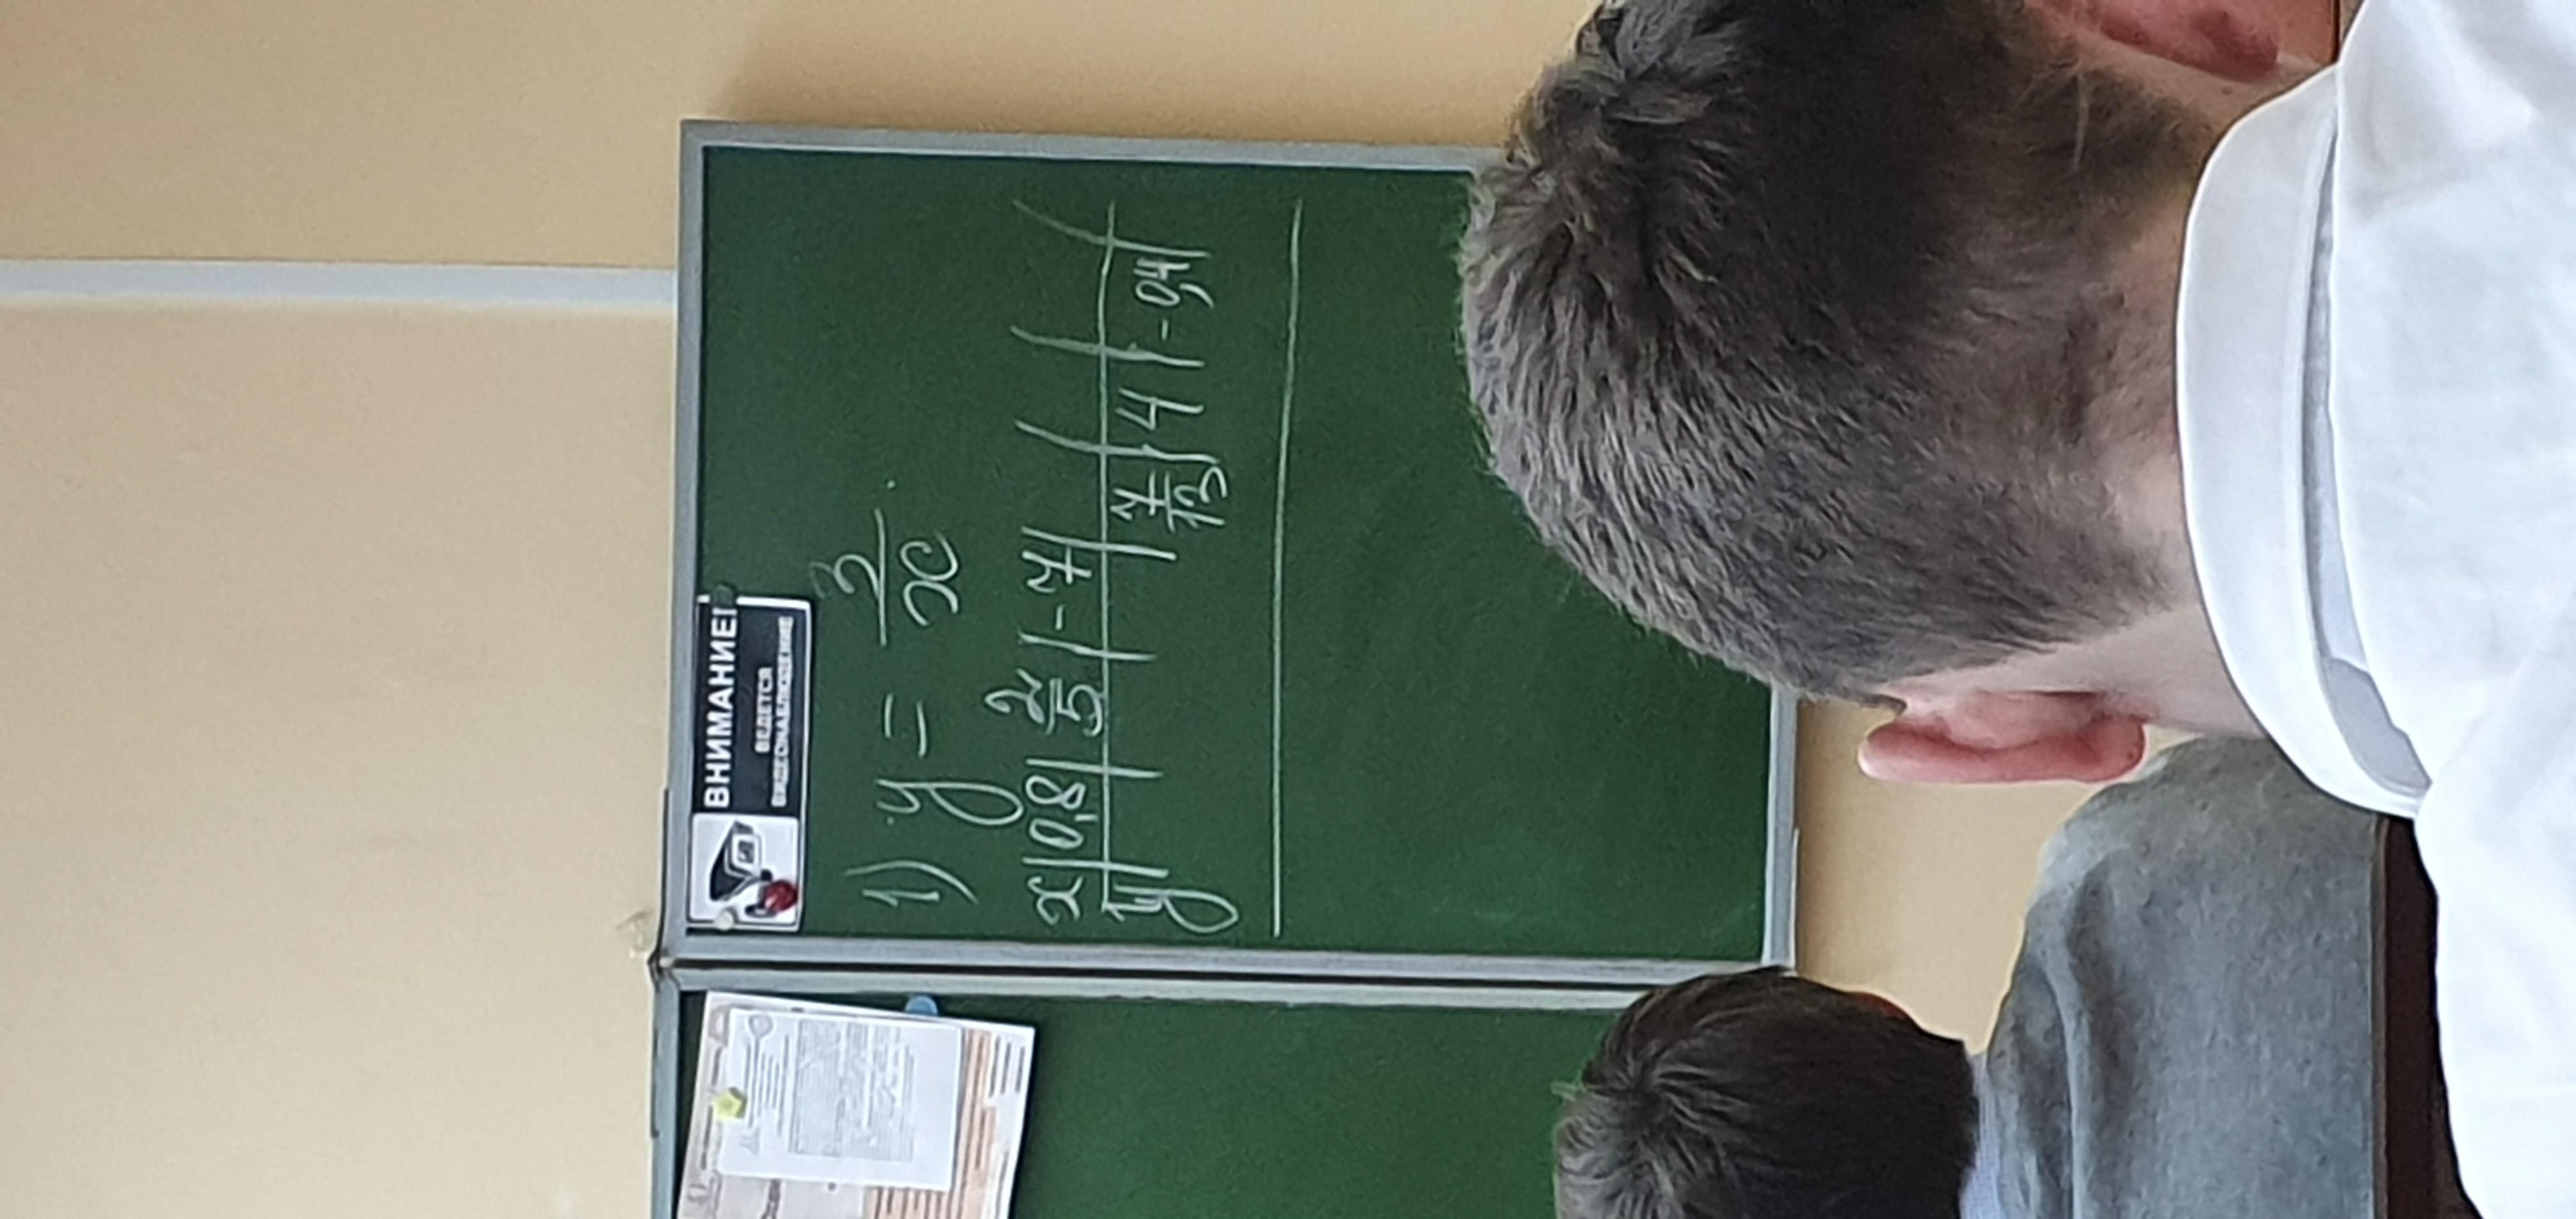 ВНИМАНИЕ!
ВЕДЕТСЯ
ВИДЕОНАБЛЮДЕНИЕ
1) y = 3/x.
x | 0,8 | 2/5 | -7 | | | |
y | | | | 7/13 | 4 | -0,4 |